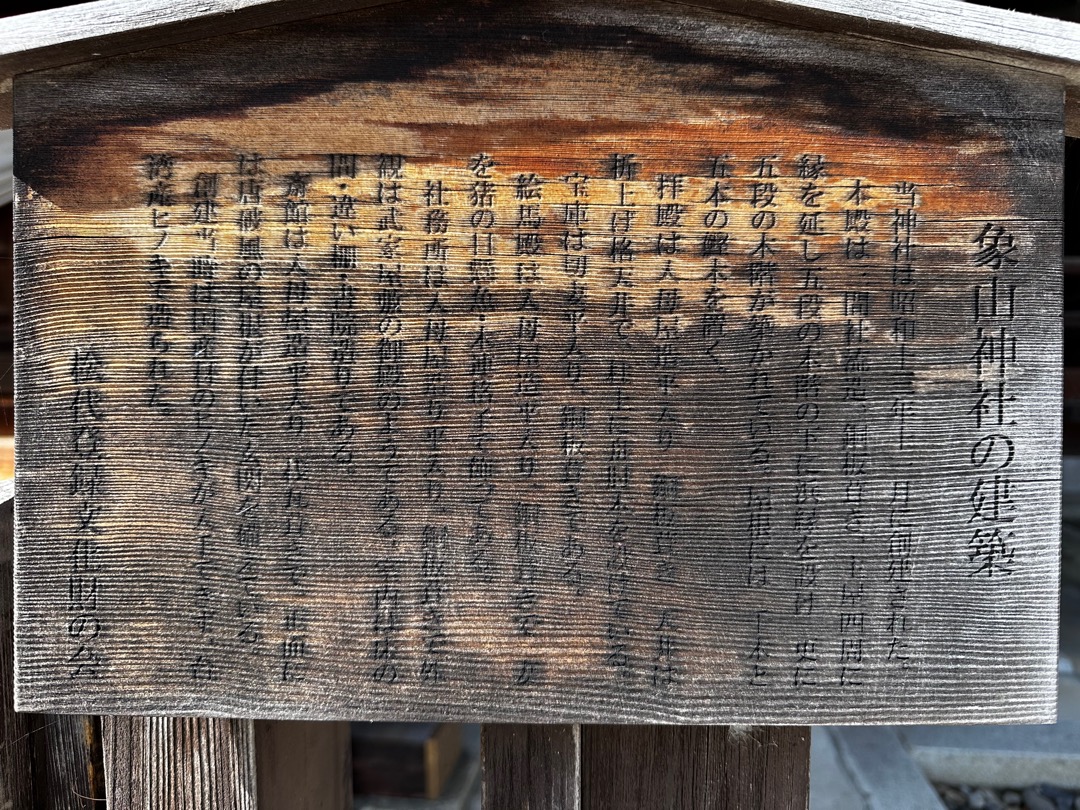 象山神社の建築
当神社は昭和十三年十一月に創建された。
本殿は一間社流造、銅板葺き、主屋四周に
縁を延し五段の木階の下に浜縁を設け、更に
五段の木階が築かれている。屋根には千木と
五本の鰹木を置く。
拝殿は入母屋造平入り、銅板葺き、天井は
折上げ格天井で、柱上に舟肘木をあげている。
宝庫は切妻平入り、銅板葺きである。
絵馬殿は入母屋造平入り、銅板葺きで、妻
を猪の目懸魚・木連格子で飾ってある。
社務所は入母屋造り平入り、銅板葺きで外
観は武家屋敷の御殿のようである。室内は床の
間・違い棚・書院造りである。
斎館は入母屋造平入り、桟瓦葺きで、正面に
は唐破風の屋根が付いた玄関を備えている。
創建当時は国産材のヒノキが入手できず、台
湾産ヒノキで造られた。
松代登録文化財の会